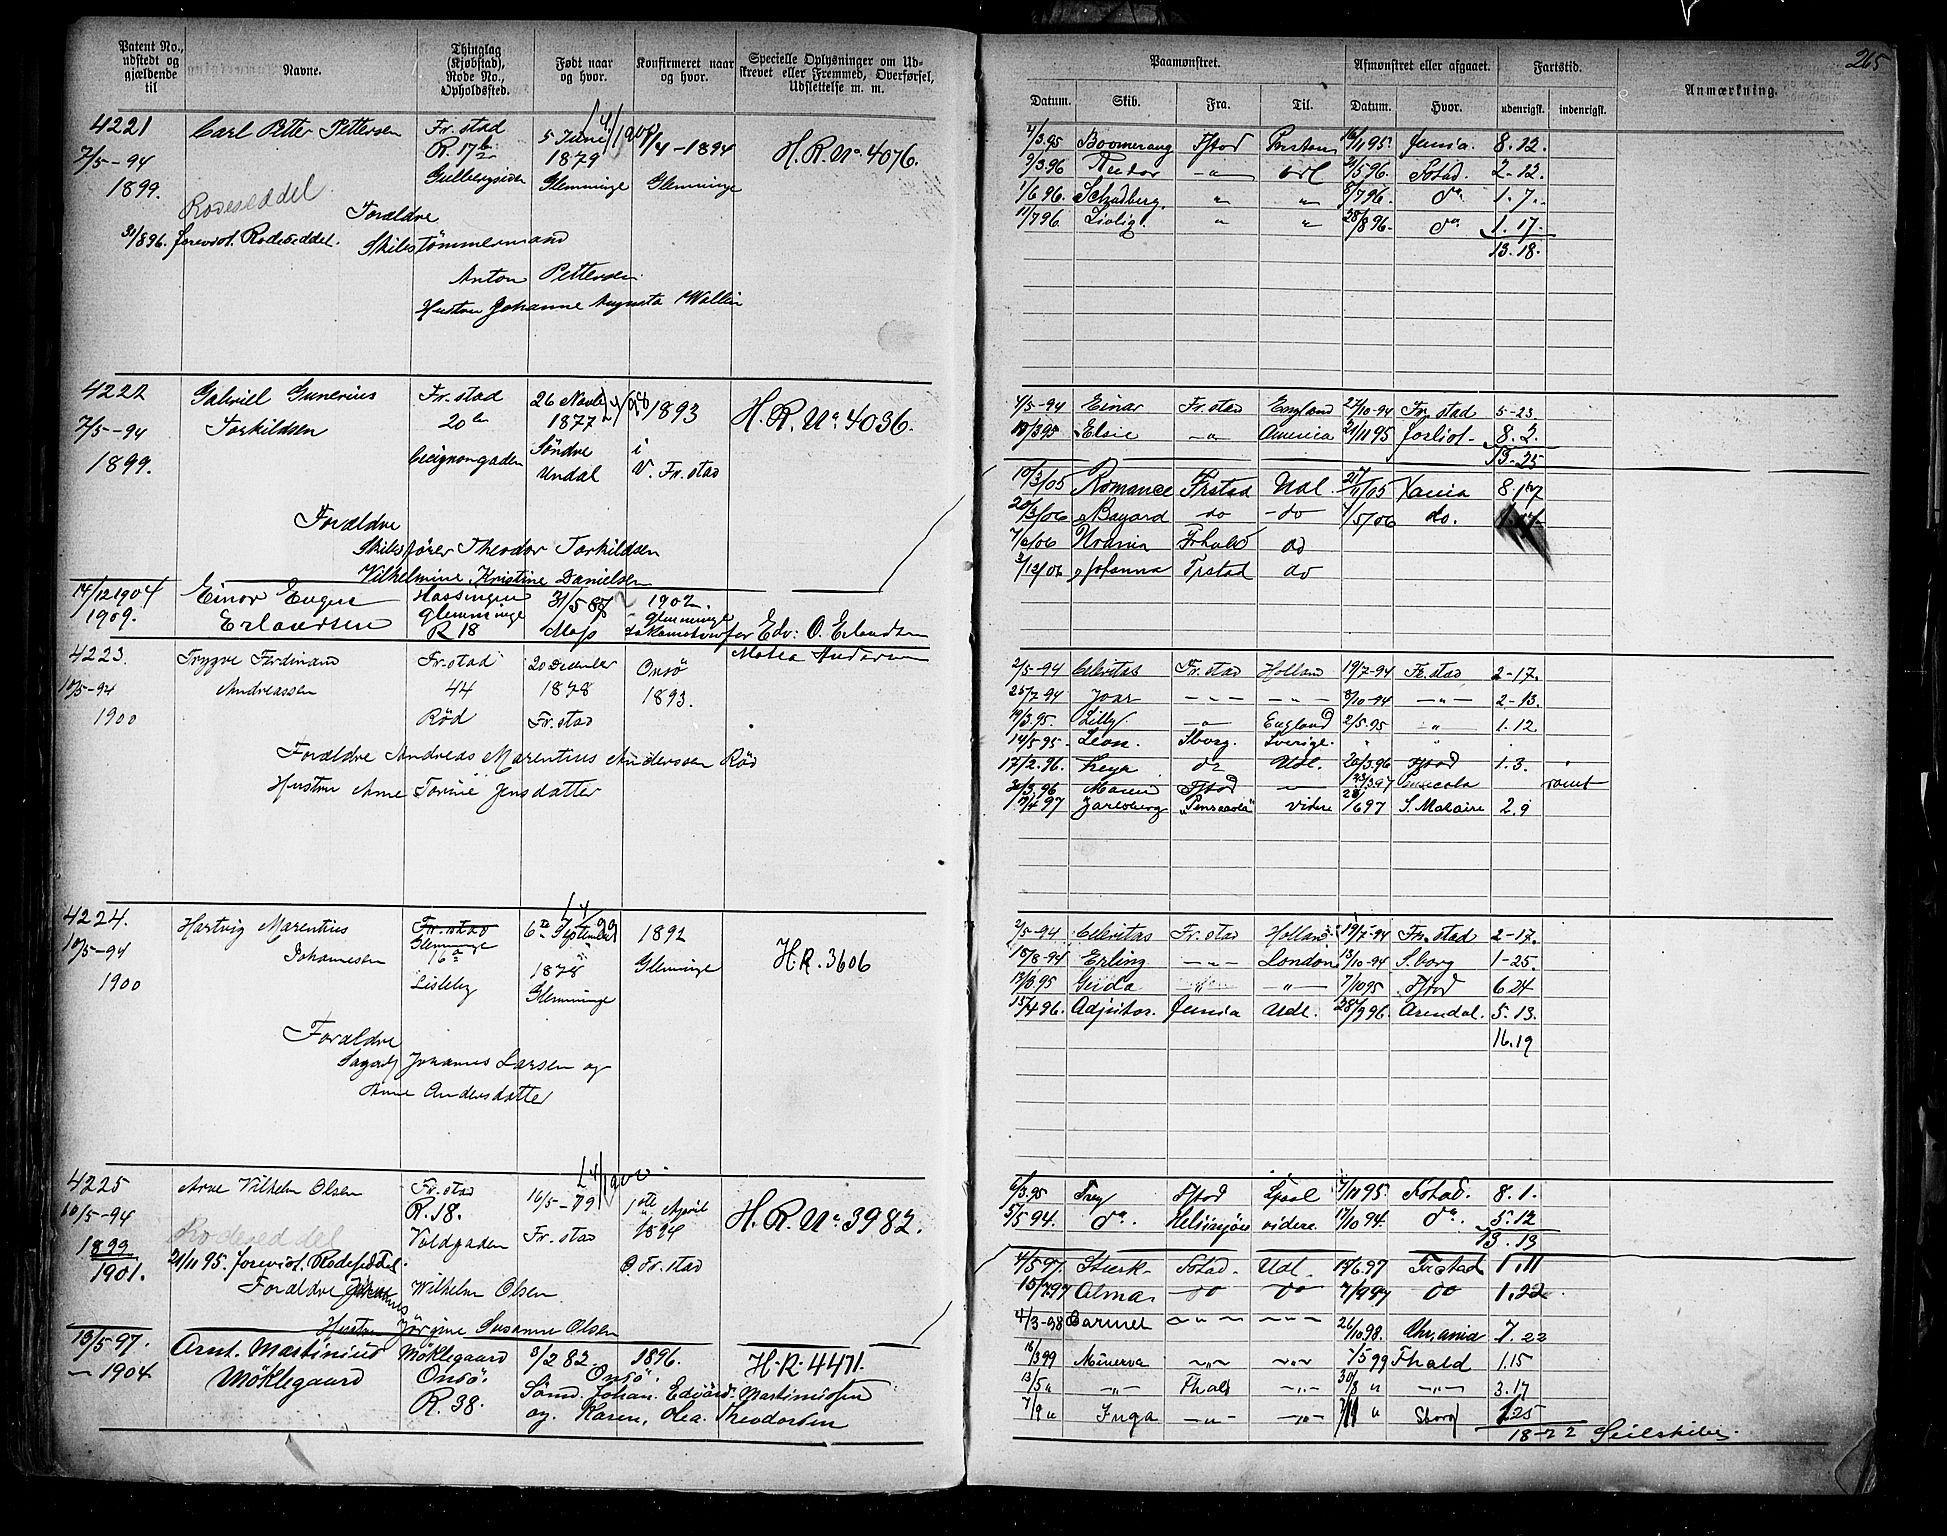 265
Patent No., udstedt og gjældende til
Navne.
Thinglag (Kjøbstad), Rode No., Opholdssted.
Født naar og hvor.
Konfirmeret naar og hvor.
Specielle Oplysninger om Udskrevet eller Fremmed, Overførsel, Udslettelse m. m.
Paamønstret.
Afmønstret eller afgaaet.
Fartstid.
Anmærkning.
Datum. Skib. Fra. Til. Datum. Hvor. udenrigsk. indenrigsk.
4221 Carl Petter Pettersen Fr. stad 5 Juni
7/5-94 R. 17b 1879 1/4-1894 H.R. No 4076.
1899. Glemminge Glemminge
Rodeseddel
31/896. forevist Rodeseddel. Forældre
Skibstømmermand
Anton Pettersen
Hustru Johanne Augusta Wallin
4/3.95 Boomerang Fstad 95. 8.22.
9/3.96 96. Fstad. 2-12.
1/6 96. 8/7 96. do 1.7.
11/7 96. Livlig 28/8 96. do 1.17.
13.18.
4222 Gabriel Gunerius Fr. stad 26 Novbr 1893 H.R. No 4036.
7/5-94 Torkildsen 20b 1877 i
1899. Søndre Undal V. Fr. stad
Forældre
Skibsfører Theodor Torkildsen
Vilhelmine Kristine Danielsen
4/5-94 Einar Fr. stad England 27/10-94 Fr. stad 5-23.
13/3 95 Elsie -"- America 21/11 95 forlist 8.2.
13-25
10/3/05 Romance Frstad Udl. 05 Xania
20/3/06 Bayard do do 7/5/06 do.
7/6/06 Urania Frhald do
3/12/06 Johanna Frstad do
14/12 1904 Einar Eugen Hassingen 31/5 87 1902.
1909. Erlandsen Glemminge Moss Glemminge
R 18 Edv: O. Erlandsen
Matea Andersen
4223. Trygve Ferdinand Fr. stad 20 December Onsø
10/5-94 Andreassen 44 1878 1893.
1900 Rød Fr. stad
Forældre Andreas Marentius Anderssen Rød
Hustru Anne Torine Jensdatter
2/5-94 Celeritas Fr. stad Holland 19/7-94 Fr. stad 2-17.
25/7 94 Joar -"- -"- 8/10-94 -"- 2-13.
19/3.95. Lilly -"- England 2/5.95 " 1.12.
14/5-95. Leon. Sborg. Sverige.
17/2.96. Freya do Udl. 20/3 96 Fstad 1.3.
31/3.96 Fstad 97 Pensacola rømt
97 Jarlsberg "Pensacola" videre 697 S. Malaire 2.9
4224. Hartvig Marentius Fr. stad 6te September 1892
10/5-94 Johannesen Glemminge 16a 1878 Glemminge H.R. 3606
1900 Lisleby Glemminge
Forældre
Johannes Larsen og
Anne Andersdatter
2/5-94 Celeritas Fr. stad Holland 19/7-94 Fr. stad 2-17.
18/8-94 Erling -"- London 13/10-94 S.borg 1-25.
13/3.95 Guida -"- -"- 7/10 95 Fstad 6.24
15/4 96. Adjutor. Udl. 28/9 96. Arendal. 5.13.
16.19
4225 Arne Vilhelm Olsen Fr. stad 16/5-79 1ste April
10/5-94 Rodeseddel R. 18. Fr. stad 1894 H.R. No 3982.
1899 Voldgaden O. Fr. stad
1901. 21/11 95. forevist. Rodeseddel.
Forældre Johannes Wilhelm Olsen
Hustru Jørgine Susanne Olsen
6/3.95 Frey Fstad 7/11 95. Fstad. 8.1.
5/5 94. do. Helsingør videre 17/10 94. do. 5.12
13.13
4/5 97. Sterk Fstad. Udl. 19/6.97 Frstad 1.11
15/7 97 Alma. do do 7/9 97 do 1.22.
4/3-98 Carmel -"- -"- 26/10 98. Chr.ania 7.22
13/5-97. Arnt. Martinius Møklegaard 3/2 82 1896. H.R. 4471.
-1904 Møklegaard Onsø. Onsø.
R. 38. Sømd. Johan. Edvard. Martiniussen
og. Karen, Olea. Theodorsen
18/3 99 Minerva -"- -"- 7/5 99 Fhald 1.15
13/5 " -"- Fhald -"- 30/8 " -"- 3.17
7/9 " Inga -"- -"- 7/11 " Sborg 1.25
18-22 Seilskibe.